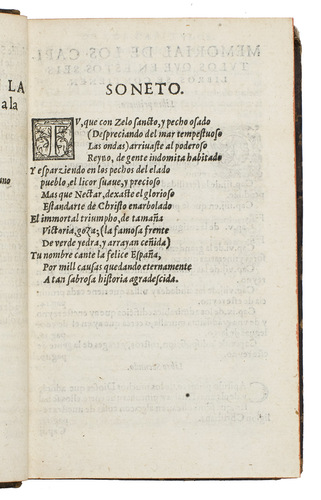 LA
a la
ano
SONETO.
TV, que con Zelo sancto, y pecho osado
(Despreciando del mar tempestuoso
Las ondas) arriuaste al poderoso
Reyno, de gente indomita habitado
Y esparziendo en los pechos del elado
pueblo, el licor suaue, y precioso
Mas que Nectar, dexaste el glorioso
Estandarte de Christo enarbolado
El immortal triumpho, de tamaña
Victoria, goza; (la famosa frente
De verde yedra, y arrayan ceñida)
Tu nombre cante la felice España,
Por mill causas quedando eternamente
A tan sabrosa historia agradescida.